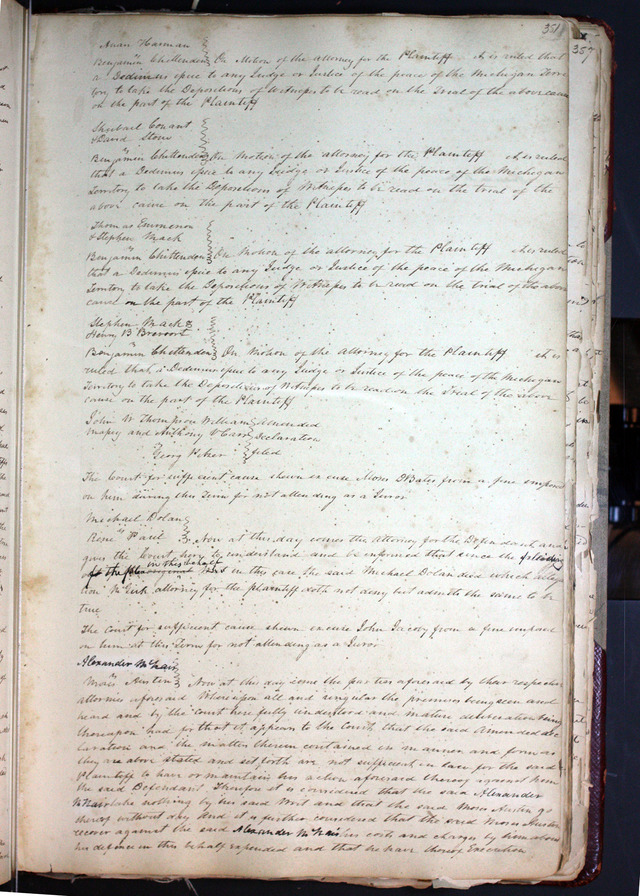 351
357
Harman
Benjamin Chittenden On Motion of the attorney for the Plaintiff it is ruled that
a Dedimus spice to any Judge or Justice of the peace of the Michigan Terri
tory to take the Depositions of Witnesses to be read on the trial of the above cause
on the part of the Plaintiff
Shubael Conant
& David Stone
Benjamin Chittenden On Motion of the attorney for the Plaintiff it is ruled
that a Dedimus spice to any Judge or Justice of the peace of the Michigan
Territory to take the Depositions of Witnesses to be read on the trial of the
above cause on the part of the Plaintiff
Thomas Emmerson
& Stephen Mack
Benjamin Chittenden On Motion of the attorney for the Plaintiff it is ruled
that a Dedimus spice to any Judge or Justice of the peace of the Michigan
Territory to take the Depositions of Witnesses to be read on the trial of the above
cause on the part of the Plaintiff
Stephen Mack &
Henry B Brevoort
Benjamin Chittenden On Motion of the attorney for the Plaintiff it is
ruled that a Dedimus spice to any Judge or Justice of the peace of the Michigan
Territory to take the Depositions of Witnesses to be read on the trial of the above
cause on the part of the Plaintiff
John W Thompson William Amended
and Anthony Declaration
filed
The Court for sufficient cause shewn excuse Moses Bates from a fine imposed
on him during this Term for not attending as a Juror
Michael Dolan
Rene Paul Now at this day comes the attorney for the Defendant and
gives the Court here to understand and be informed that since the pleading
in this behalf
in this case the said Michael Dolan died which allega
tion McGirk attorney for the plaintiff doth not deny but admits the same to be
true
The Court for sufficient cause shewn excuse John Jacoby from a fine imposed
on him at this Term for not attending as a Juror
Alexander McNair
Moses Austin Now at this day come the parties aforesaid by their respective
attornies aforesaid Whereupon all and singular the premises being seen and
heard and by the court here fully understood and mature deliberation being
thereupon had for that it appears to the Court that the said Amended de
claration and the matters therein contained in manner and form as
they are above stated and set forth are not sufficient in law for the said
Plaintiff to have or maintain his action aforesaid thereof against him
the said Defendant Therefore it is considered that the said Alexander
McNair take nothing by his said Writ and that the said Moses Austin go
thereof without day And it is further considered that the said Moses Austin
recover against the said Alexander McNair his costs and charges by him about
his defence in this behalf expended and that he have thereof Execution